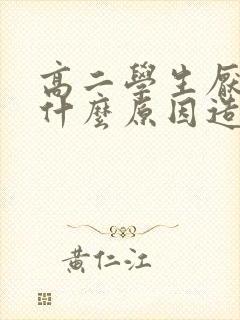 高二學生厭
什麼原因造
黃仁江